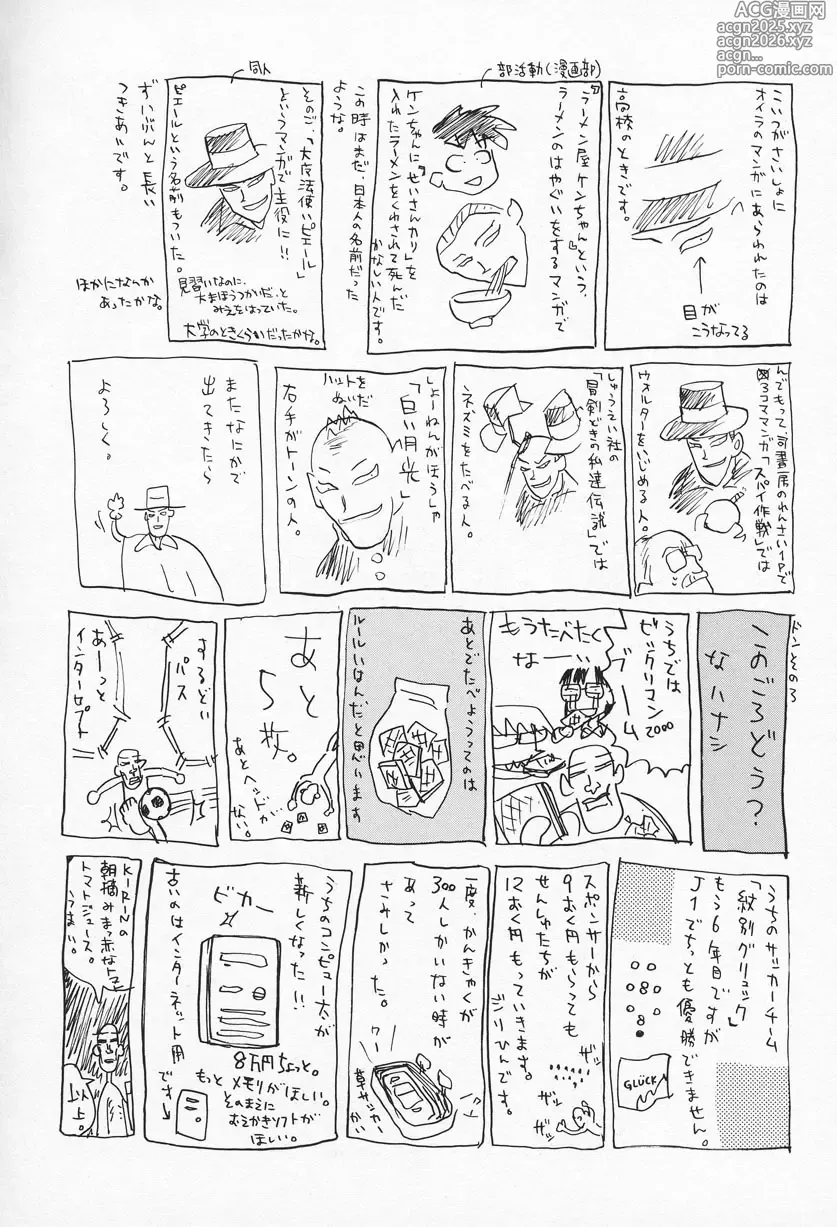 ACG漫画网
acgn2025.xyz
acgn2026.xyz
acgn....xyz
porn-comic.com
こいつがさいしょに
オイラのマンガにあらわれたのは
高校のときです。
目が
こうなってる
部活動(漫画部)
「ラーメン屋ケンちゃん」という、
ラーメンのはやぐいをするマンガで
ケンちゃんに「せいさんカリ」を
入れたラーメンをくわされて死んだ
かなしい人です。
この時はまだ、日本人の名前だった
ような。
同人
そのご、「大魔法使いピエール」
というマンガで主役に!!
ピエールという名前もついた。
見習いなのに、
大まほうつかいだ、と
みえをはっていた。
大学のときくらいだったかな。
ずいぶんと長い
つきあいです。
ほかになんか
あったかな。
んでもって、司書房のれんさい1Pで
3コママンガ「スパイ作戦」では
ウォルターをいじめる人。
しゅうえい社の
「冒剣どきの私達伝説」では
ネズミをたべる人。
しょーねんがほうしゃ
「白い月光」
ハットを
ぬいだ
右手がトーンの人。
またなにかで
出てきたら
よろしく。
ドンその3
このごろどう?
なハナシ
うちでは
ゼックリコン
2000
ブーム
もうたべたく
なーい
あとでたべようってのは
ルールいはんだと思います
あと
5枚。
あとヘッドが
ない。
するどい
パス
あーっと
インターセプト
うちのサッカーチーム
「紋別グリュック」
もう6年目ですが
J1でちっとも優勝できません。
GLÜCK
スポンサーから
9おく円もらっても
せんしゅたちが
12おく円もっていきます。
ヨリひんです。
ザッ
ザッ
ザッ
一度、かんきゃくが
300人しかいない時が
あって
さみしかった。
ワー
草サッカー
かい
うちのコンピュー太が
新しくなった!!
ピカー
8万円ちょっと。
もっとメモリがほしい。
そのまえに
おえかきソフトが
ほしい。
古いのはインターネット用
です→
KIRINの
朝摘みまっ赤なトマト
トマトジュース。
うまい。
以上。